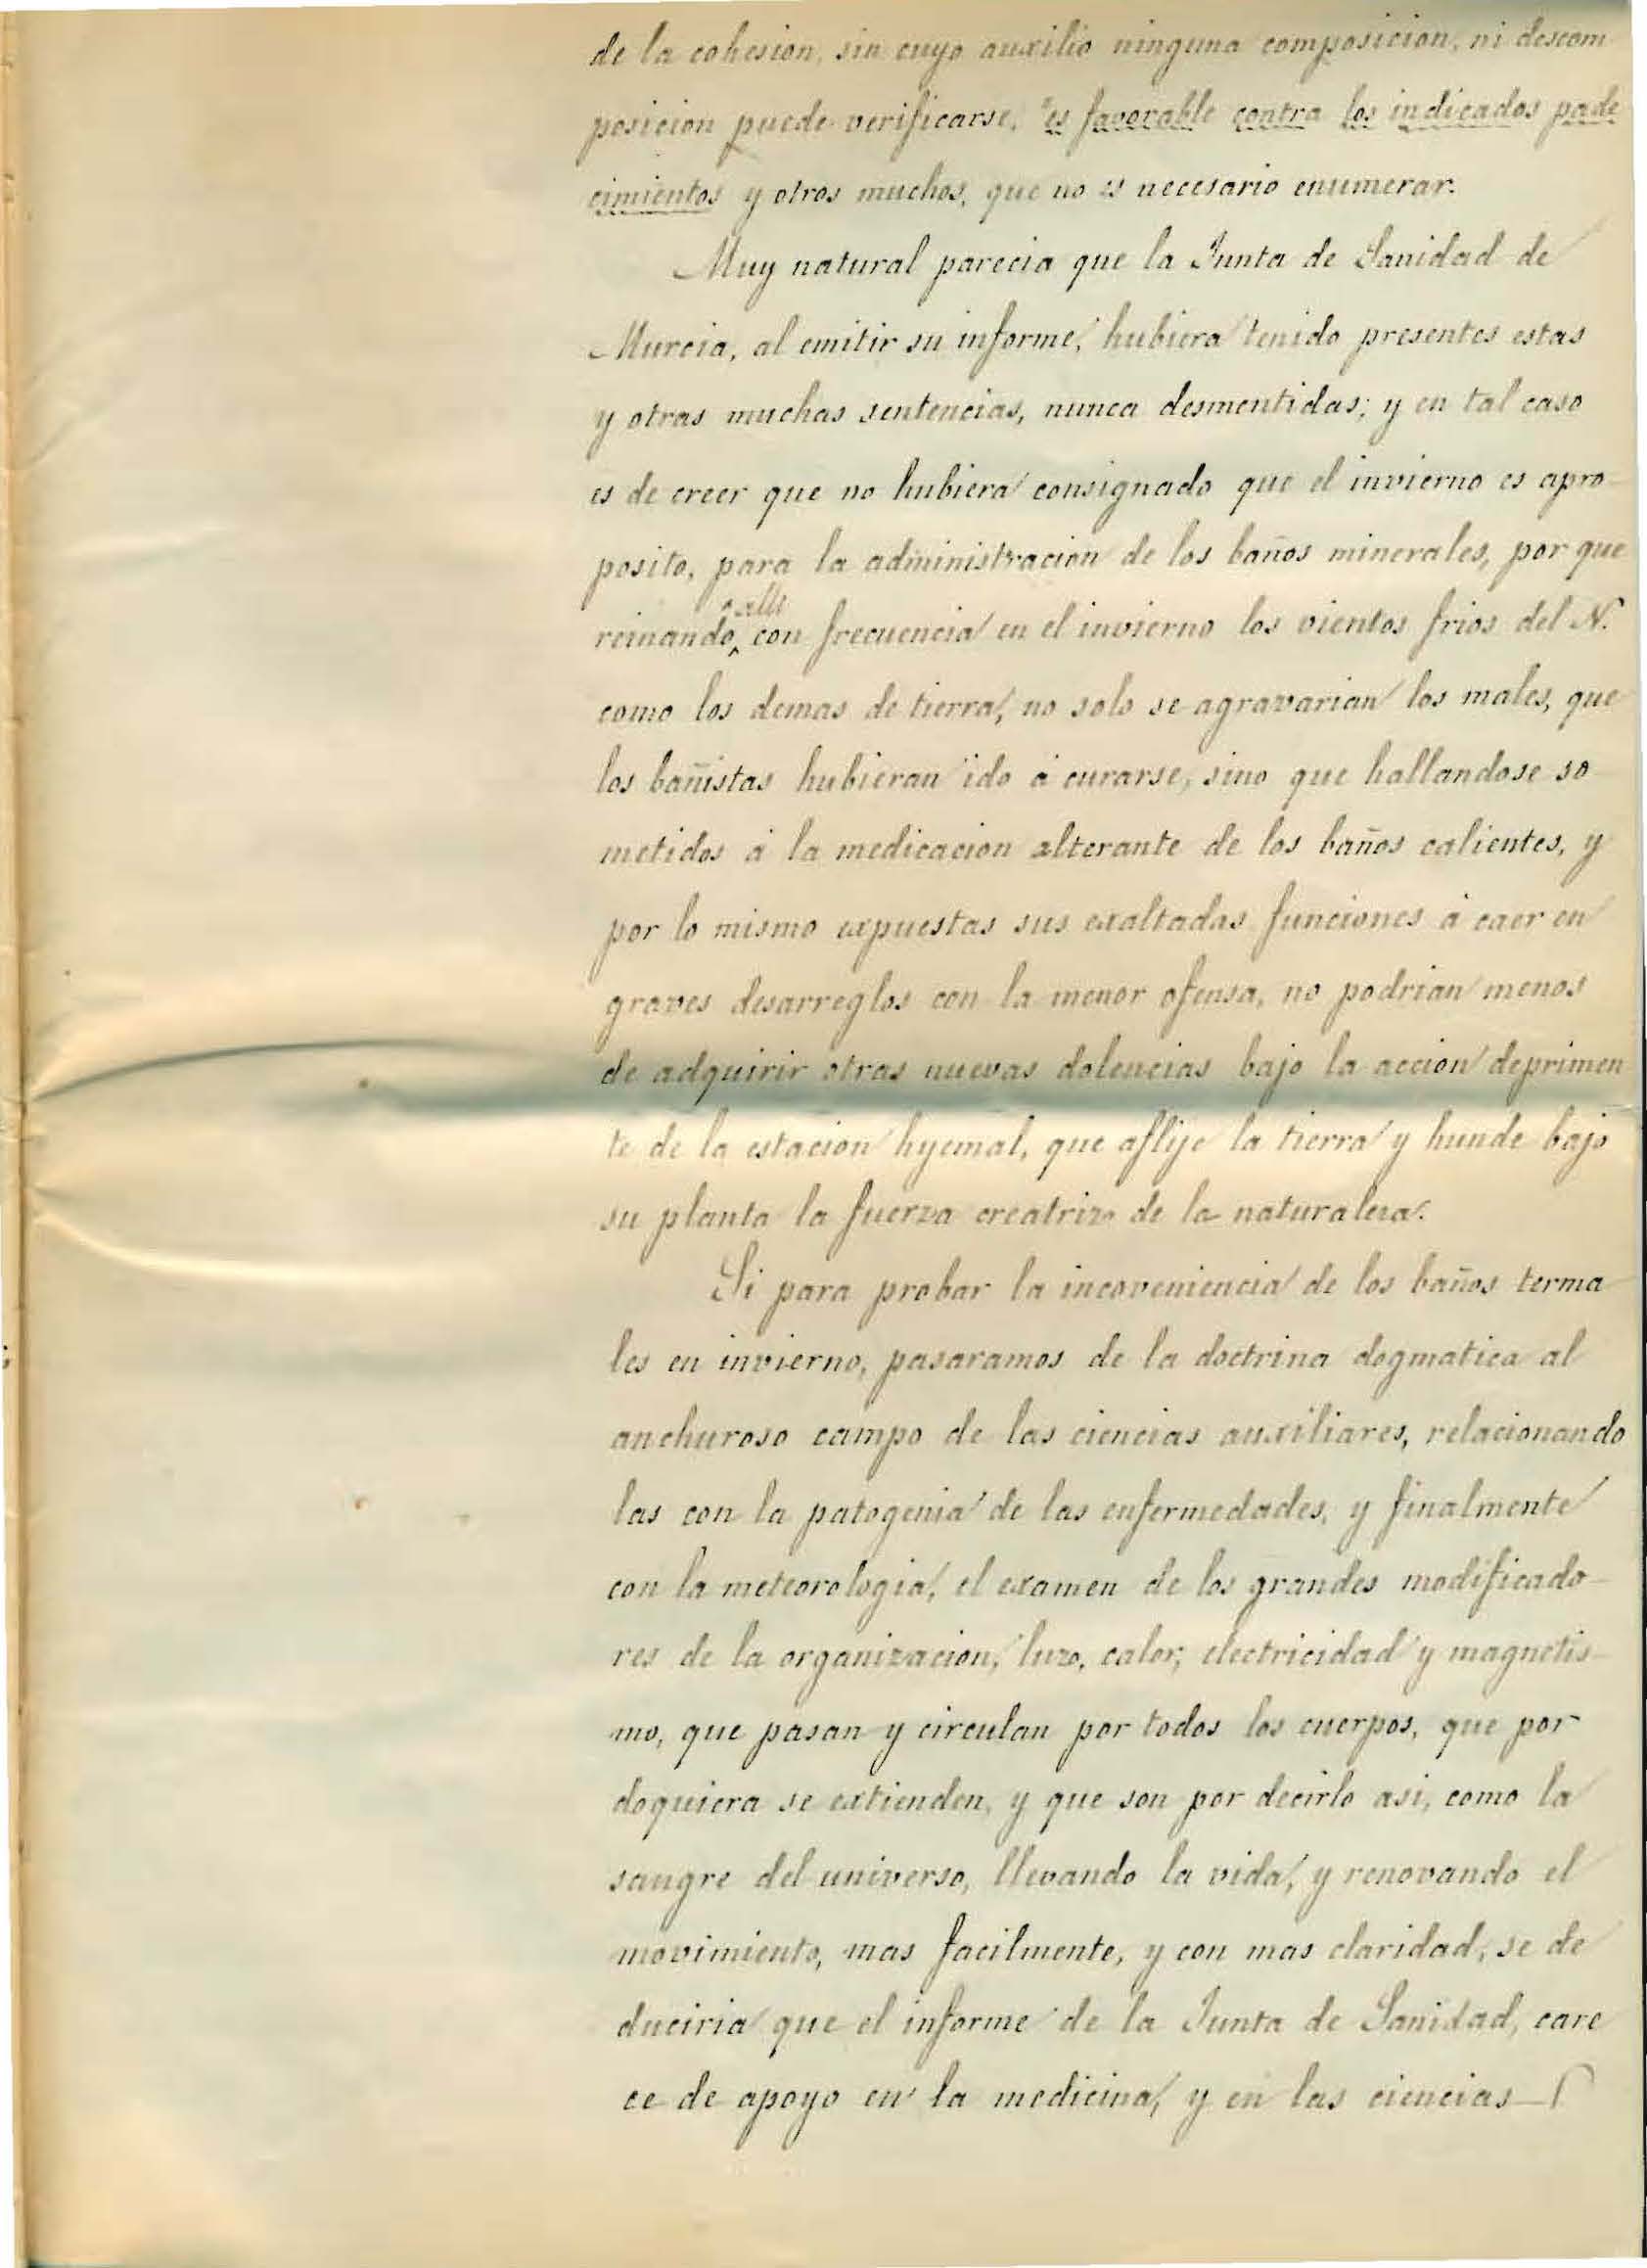 de la cohesion, sin cuyo auxilio ninguna composicion, ni descom
posicion puede verificarse, "es favorable contra los indicados pade
cimientos y otros muchos, que no es necesario enumerar.
Muy natural parecia que la Junta de Sanidad de
Murcia, al emitir su informe, hubiera tenido presentes estas
y otras muchas sentencias, nunca desmentidas; y en tal caso
es de creer que no hubiera consignado que el invierno es apro-
posito, para la administracion de los baños minerales, por que
alli
reinando, con frecuencia en el invierno los vientos frios del N.
como los demas de tierra, no solo se agravarian los males, que
los bañistas hubieran ido á curarse, sino que hallandose so
metidos á la medicacion alterante de los baños calientes, y
por lo mismo expuestas sus exaltadas funciones á caer en
graves desarreglos con la menor ofensa, no podrian menos
de adquirir otras nuevas dolencias bajo la accion deprimen
te de la estacion hyemal, que aflije la tierra y hunde bajo
su planta la fuerza creatriz de la naturaleza.
Si para probar la incoveniencia de los baños terma
les en invierno, pasaramos de la doctrina dogmatica al
anchuroso campo de las ciencias auxiliares, relacionando
las con la patogenia de las enfermedades, y finalmente
con la meteorologia, el examen de los grandes modificado-
res de la organizacion, luz, calor, electricidad y magnetis-
mo, que pasan y circulan por todos los cuerpos, que por
doquiera se extienden, y que son por decirlo asi, como la
sangre del universo, llevando la vida, y renovando el
movimiento, mas facilmente, y con mas claridad, se de
duciria que el informe de la Junta de Sanidad, care
ce de apoyo en la medicina, y en las ciencias